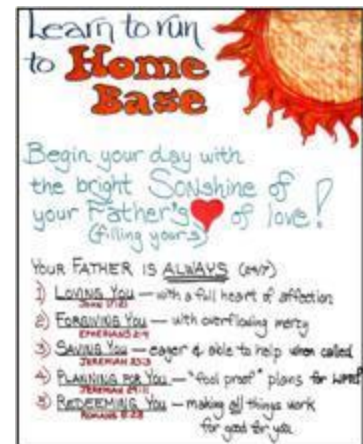 Learn to run
to Home
Base
Begin your day with
the bright SONshine of
your Father's of love!
(filling yours)
YOUR FATHER IS ALWAYS (24/7)
1) LOVING YOU — with a full heart of affection
JOHN 17:23
2) FORGIVING YOU — with overflowing mercy
EPHESIANS 2:4
3) SAVING YOU — eager & able to help when called
JEREMIAH 33:3
4) PLANNING FOR YOU — "fool proof" plans for
JEREMIAH 29:11
5) REDEEMING YOU — making all things work
ROMANS 8:28
for good for you